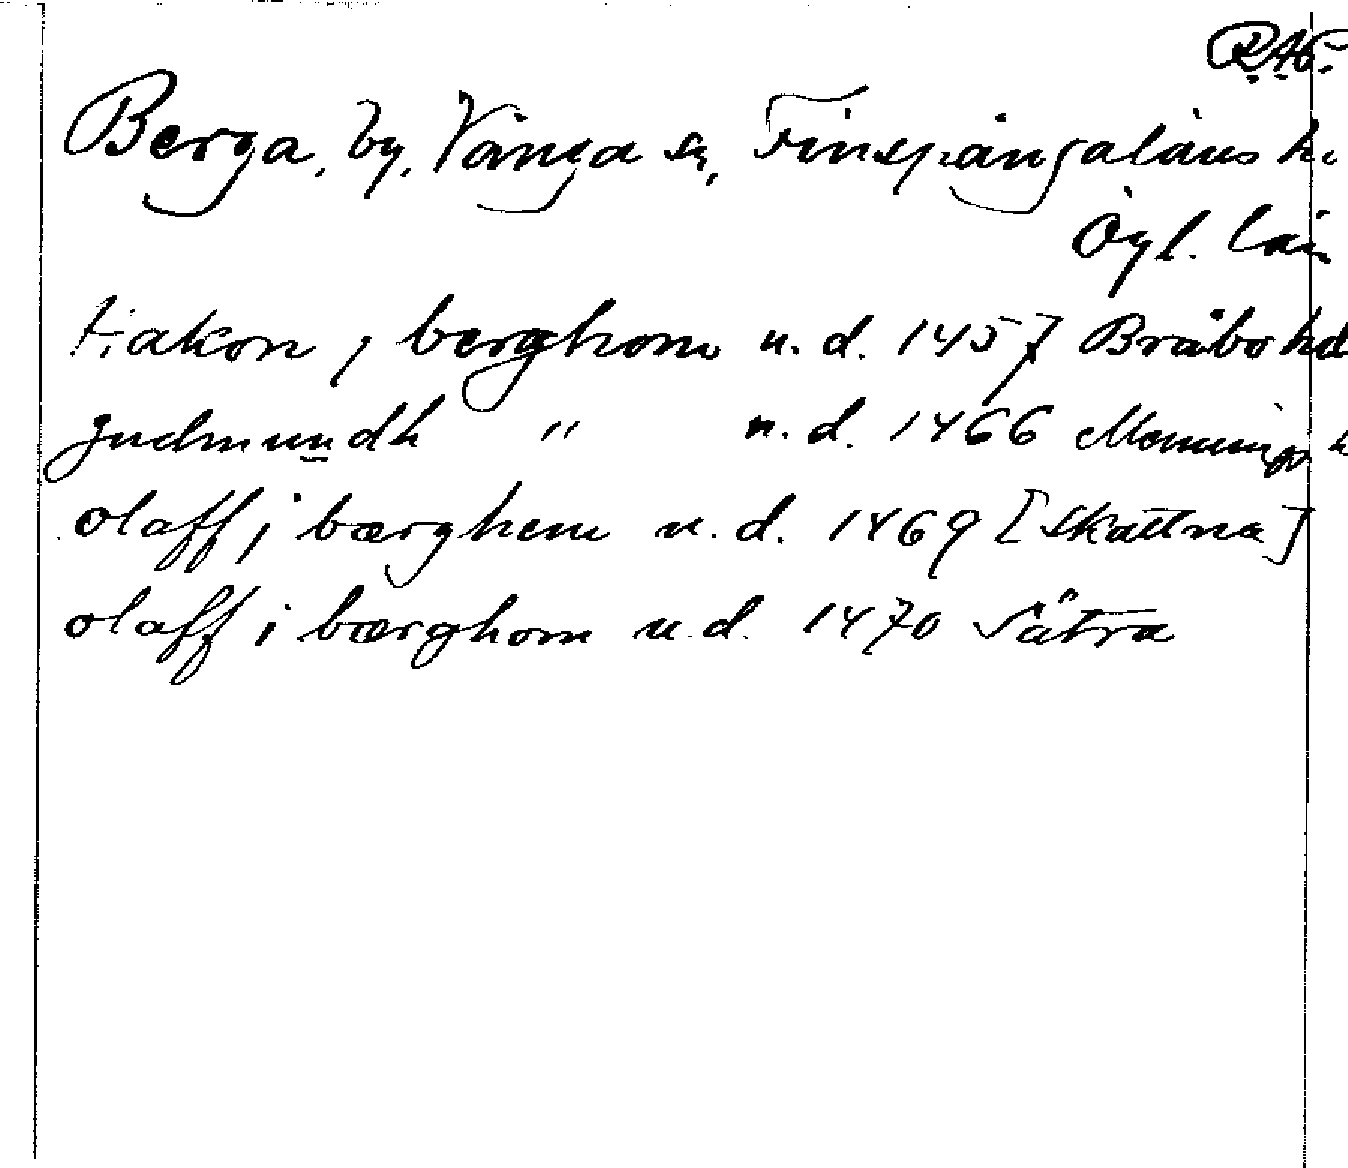 RAP.
Berga, by, Vånga sn, Finspångaläns h.
Ögl. län
Hakon j berghom u. d. 1457 Bråbo hd
gudmundh " u. d. 1466 Memmings h
olaff j bærghem u. d. 1469 [Skattna]
olaff i bærghom u. d. 1470 Sätra